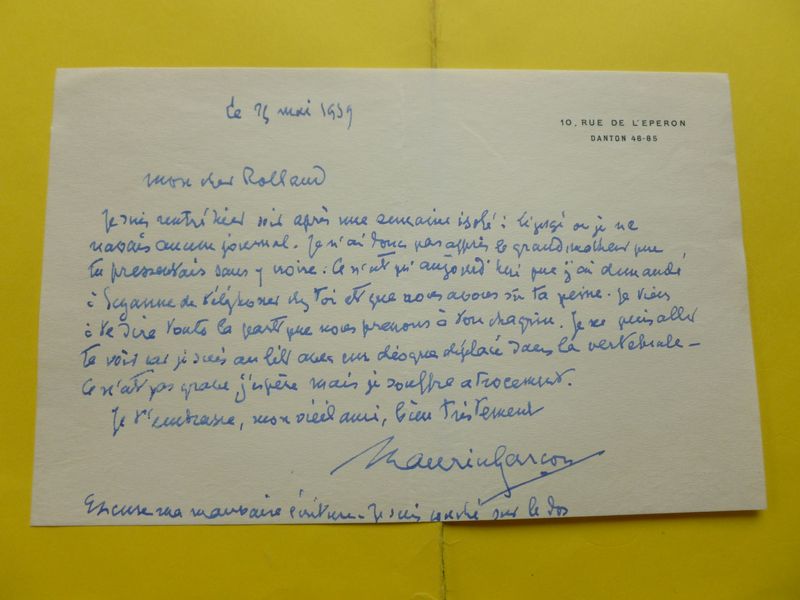 10, RUE DE L'EPERON
DANTON 46-85
le 25 mai 1959
mon cher Rolland
Je suis rentré hier soir après une semaine isolé à Ligugé où je ne
recevais aucun journal. Je n'ai donc pas appris le grand malheur que
tu pressentais sans y croire. Ce n'est qu'aujourd'hui que j'ai demandé
à Suzanne de téléphoner chez toi et que nous avons su ta peine. Je viens
te dire toute la part que nous prenons à ton chagrin. Je ne puis aller
te voir car je suis au lit avec un disque déplacé dans la vertébrale -
Ce n'est pas grave j'espère mais je souffre atrocement.
Je t'embrasse, mon vieil ami, bien tristement
Maurice Garçon
Excuse ma mauvaise écriture - Je suis couché sur le dos